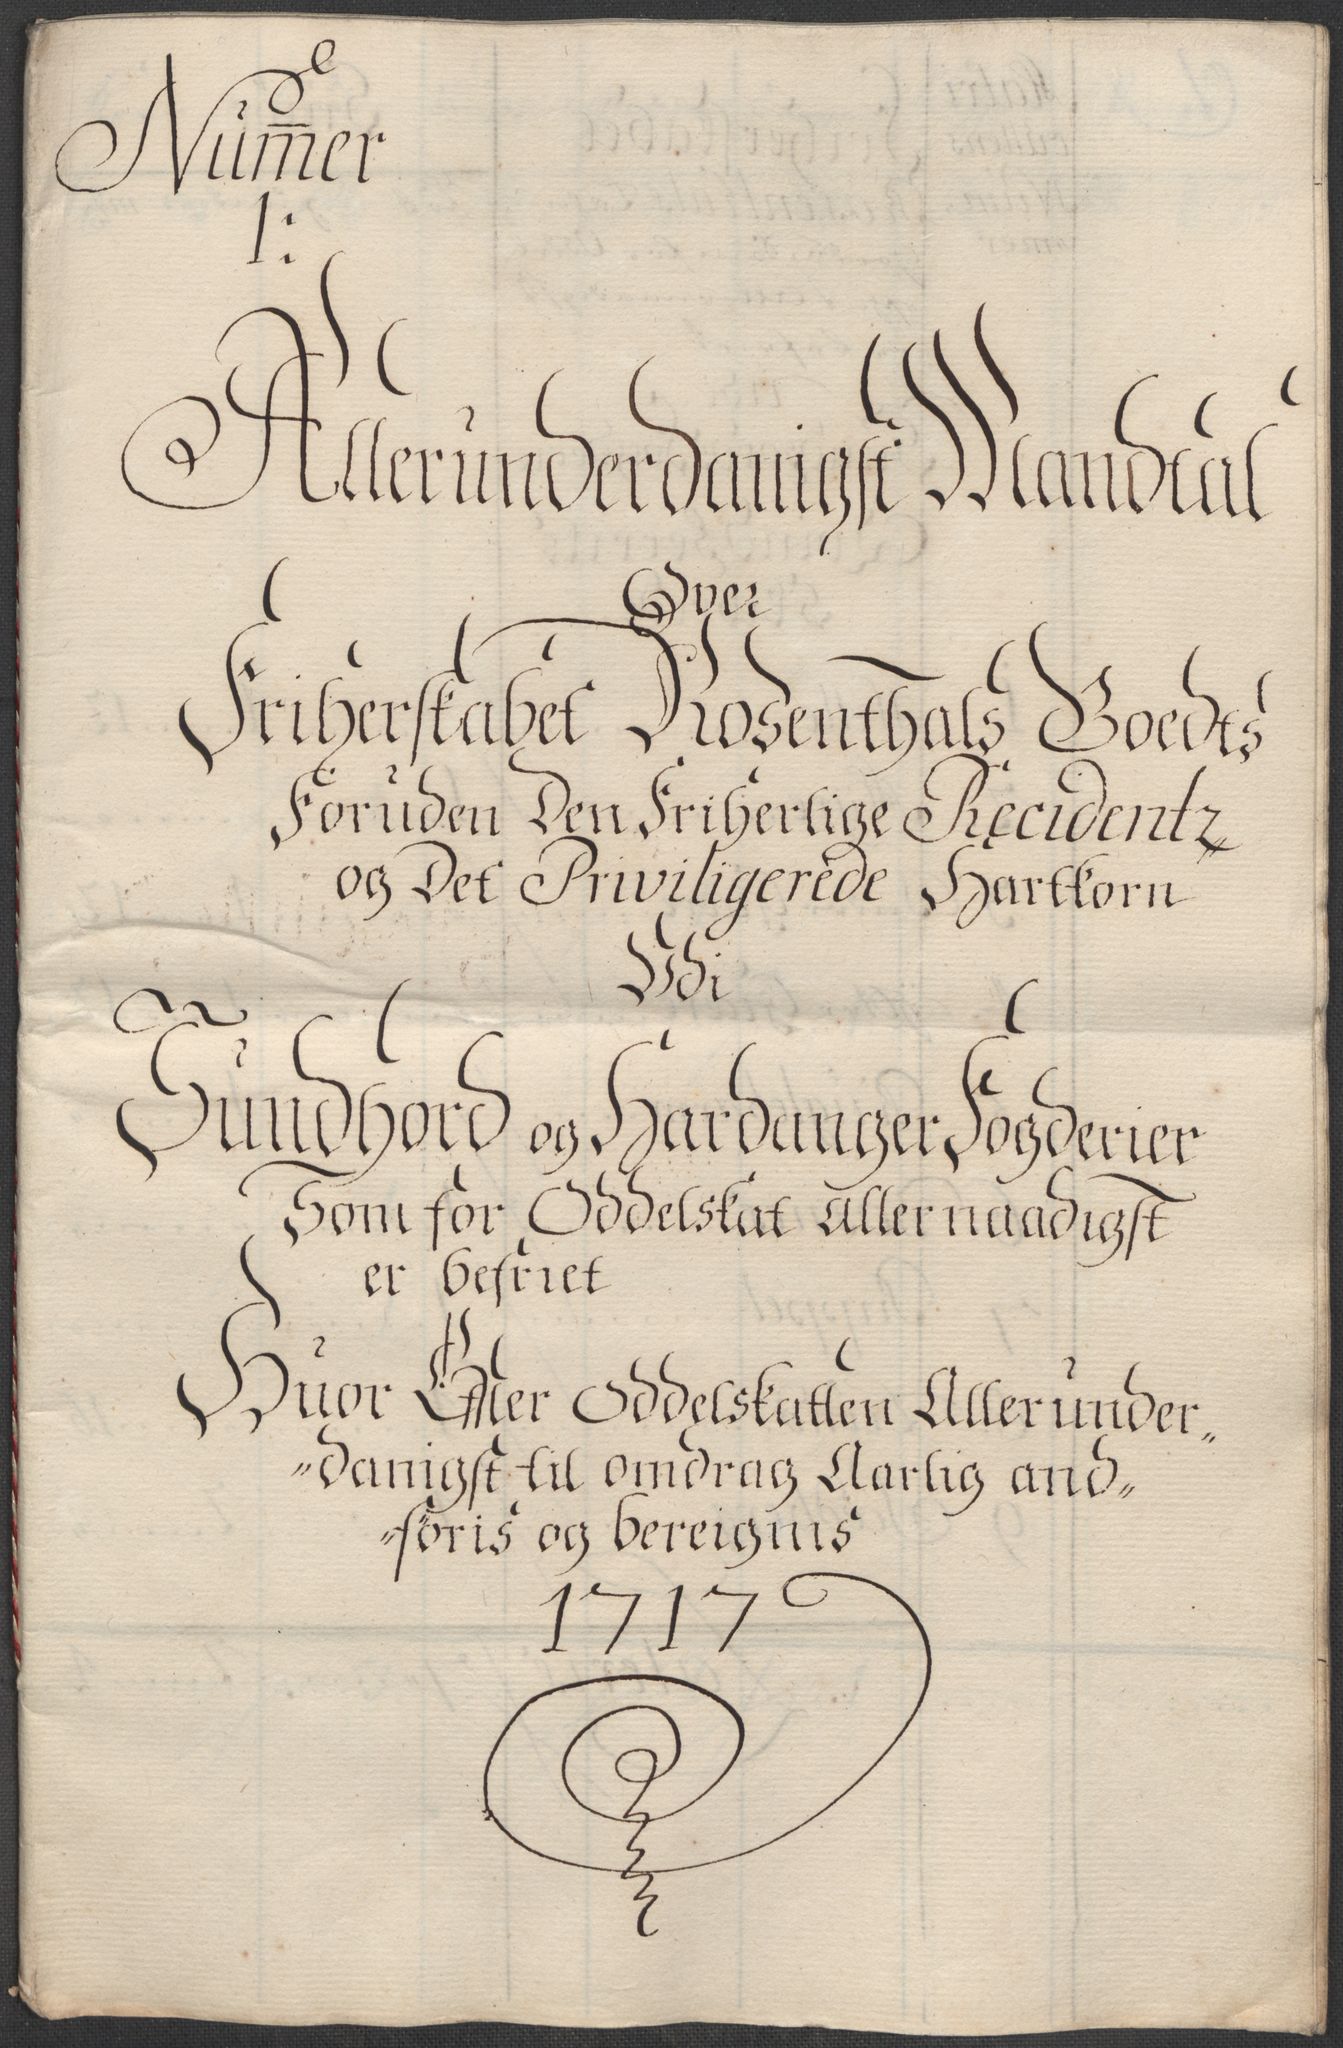 Numer
1:
Allerunderdanigst Mandtal
Over
Friherskabet Rosenthals Goedts
Foruden Den Friherlige Recidentz
og Det Priviligerede Hartkorn
Udi
Sundhord og Hardanger Fogderier
Som for Oddelskat allernaadigst
er befriet
Huor Effter Oddelskatten Allerunder„
„danigst til omdrag Aarlig and„
„föris og bereignis
1717